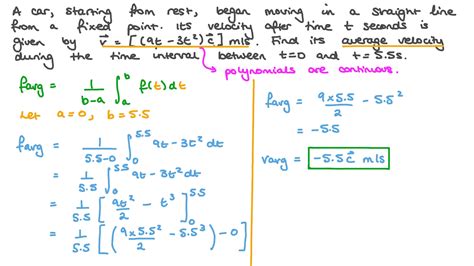 A car, starting from rest, began moving in a straight line
from a fixed point. Its velocity after time t seconds is
given by v⃗ = [(9t - 3t²) c⃗] m/s. Find its average velocity
during the time interval between t=0 and t=5.5s.
polynomials are continuous.
favg = 1/(b-a) ∫_a^b f(t)dt
Let a=0, b=5.5
favg = 1/(5.5-0) ∫_0^5.5 9t - 3t² dt
= 1/5.5 ∫_0^5.5 9t - 3t² dt
= 1/5.5 [9t²/2 - t³]_0^5.5
= 1/5.5 [(9×5.5²/2 - 5.5³) - 0]
favg = 9×5.5/2 - 5.5²
= -5.5
vavg = -5.5 c⃗ m/s